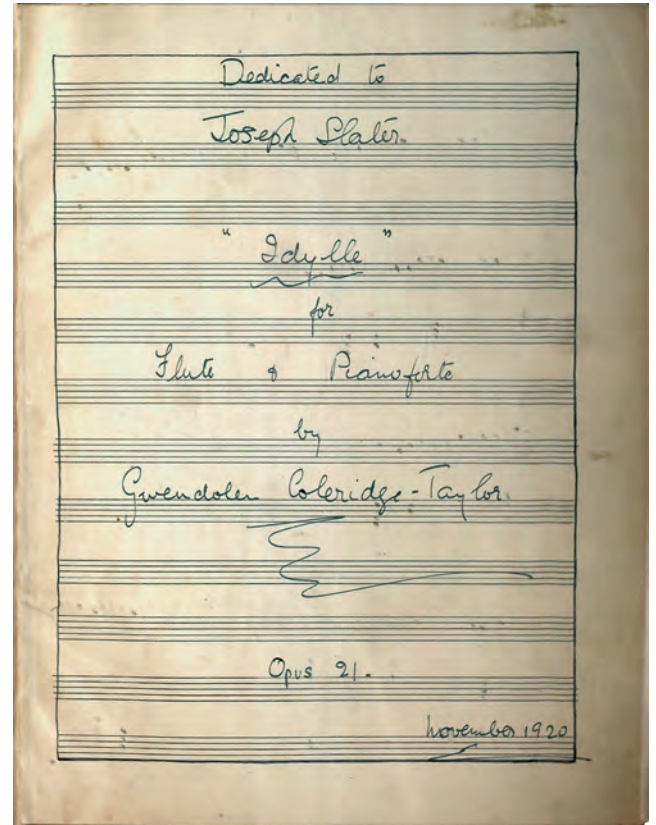 Dedicated to
Joseph Slater.
"Idylle"
for
Flute & Pianoforte
by
Gwendolen Coleridge-Taylor.
Opus 21.
November 1920